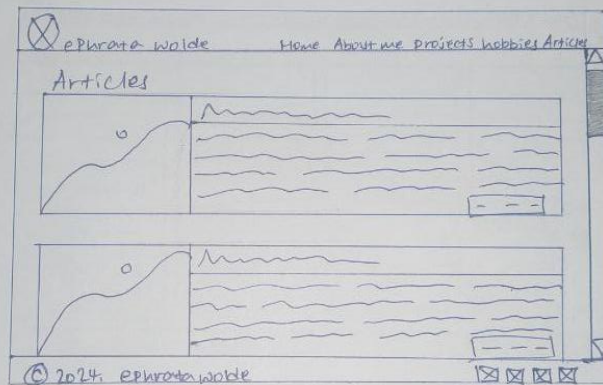 ephrata wolde
Home About me projects hobbies Articles
Articles
© 2024, ephrata wolde